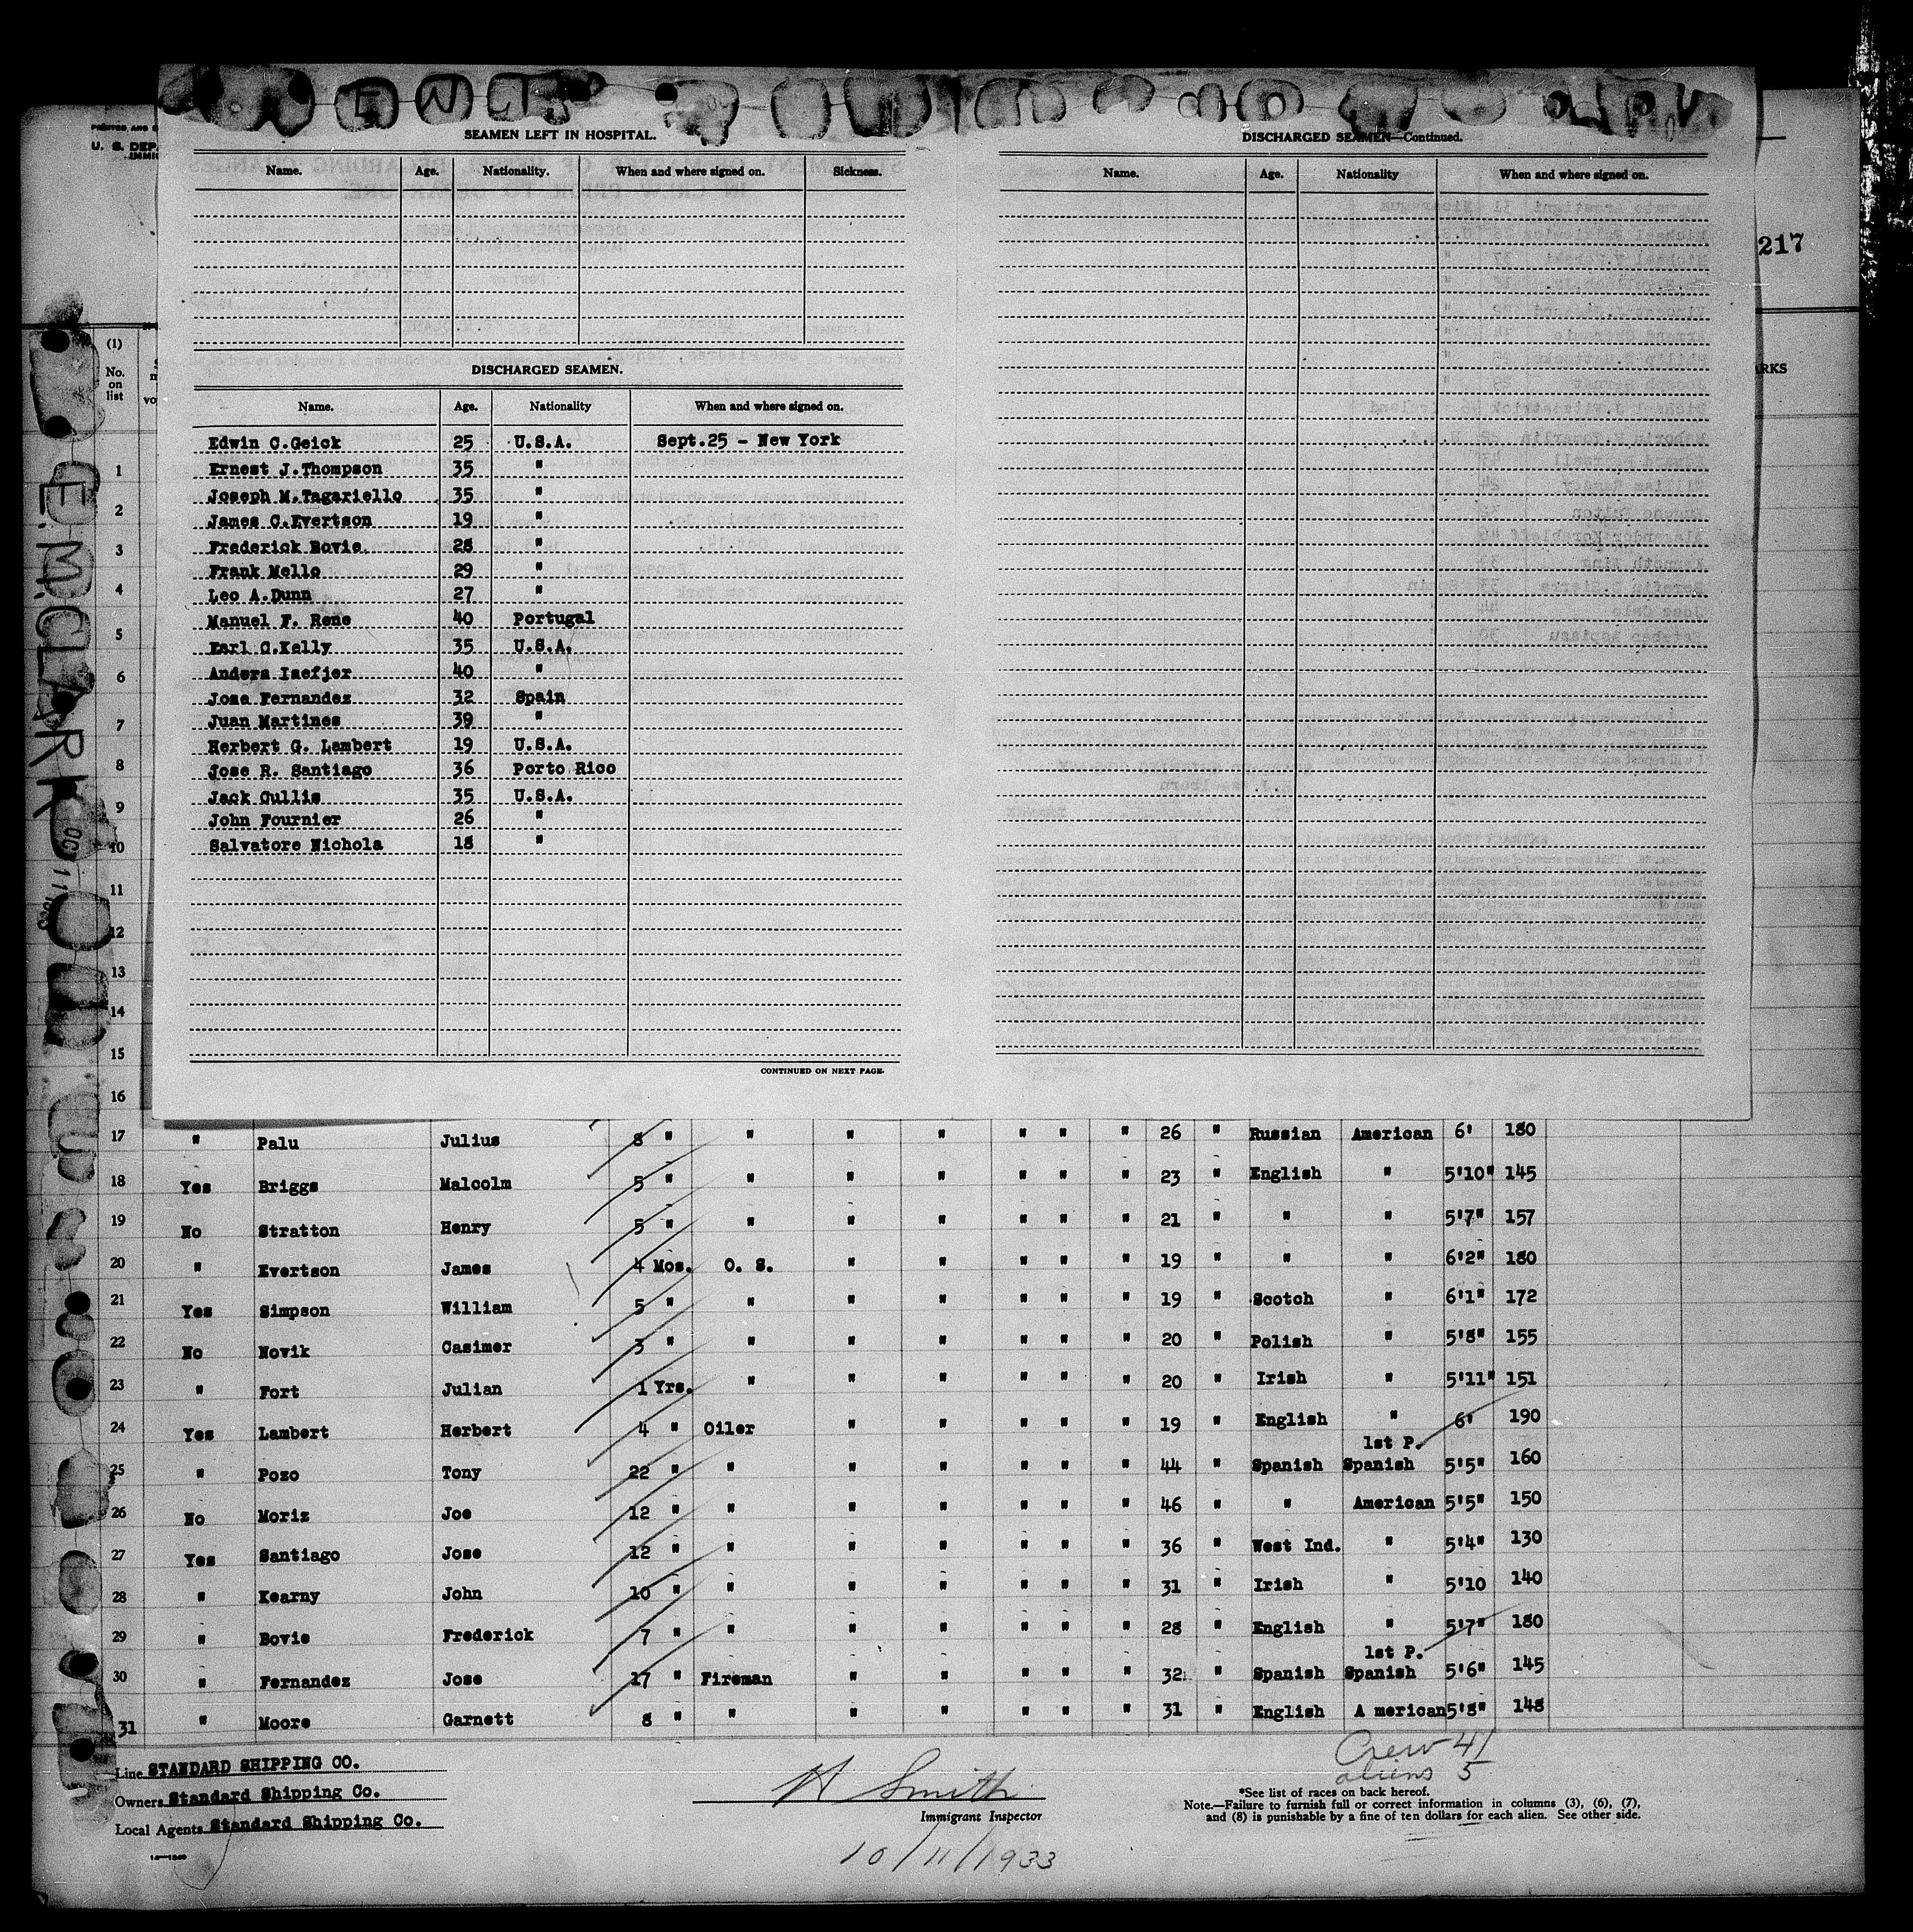 SEAMEN LEFT IN HOSPITAL.
Name. Age. Nationality. When and where signed on. Sickness.
DISCHARGED SEAMEN.
Name. Age. Nationality When and where signed on.
Edwin C.Geick 25 U.S.A. Sept.25 - New York
Ernest J.Thompson 35 "
Joseph M.Tagariello 35 "
James C.Evertson 19 "
Frederick Bovie 28 "
Frank Mello 29 "
Leo A.Dunn 27 "
Manuel F. Rene 40 Portugal
Earl C.Kelly 35 U.S.A.
Anders Isefjer 40 "
Jose Fernandez 32 Spain
Juan Martines 39 "
Herbert G. Lambert 19 U.S.A.
Jose R. Santiago 36 Porto Rico
Jack Cullis 35 U.S.A.
John Fournier 26 "
Salvatore Nichola 18 "
CONTINUED ON NEXT PAGE.
DISCHARGED SEAMEN—Continued.
Name. Age. Nationality When and where signed on.
217
U. S. DEP
IMMI
(1)
No.
on
list
ARKS
E.M.CLARK
1
2
3
4
5
6
7
8
9
10
11
12
13
14
15
16
17 " Palu Julius 8 " " " " " " " 26 " Russian American 6' 180
18 Yes Briggs Malcolm 5 " " " " " " " 23 " English " 5'10" 145
19 No Stratton Henry 5 " " " " " " " 21 " " " 5'7" 157
20 " Evertson James 4 Mos. O. S. " " " " " 19 " " " 6'2" 180
21 Yes Simpson William 5 " " " " " " " 19 " Scotch " 6'1" 172
22 No Novik Casimer 3 " " " " " " " 20 " Polish " 5'8" 155
23 " Fort Julian 1 Yrs. " " " " " " 20 " Irish " 5'11" 151
24 Yes Lambert Herbert 4 " Oiler " " " " " 19 " English " 6' 190
1st P.
25 " Pozo Tony 22 " " " " " " " 44 " Spanish Spanish 5'5" 160
26 No Moriz Joe 12 " " " " " " " 46 " " American 5'5" 150
27 Yes Santiago Jose 12 " " " " " " " 36 " West Ind. " 5'4" 130
28 " Kearny John 10 " " " " " " " 31 " Irish " 5'10 140
29 " Bovie Frederick 7 " " " " " " " 28 " English " 5'7" 180
1st P.
30 " Fernandez Jose 17 " Fireman " " " " " 32 " Spanish Spanish 5'6" 145
31 " Moore Garnett 8 " " " " " " " 31 " English A merican 5'8" 148
Crew 41
aliens 5
Line STANDARD SHIPPING CO.
Owners Standard Shipping Co.
Local Agents Standard Shipping Co.
H Smith
Immigrant Inspector
10/11/1933
*See list of races on back hereof.
Note.—Failure to furnish full or correct information in columns (3), (6), (7),
and (8) is punishable by a fine of ten dollars for each alien. See other side.